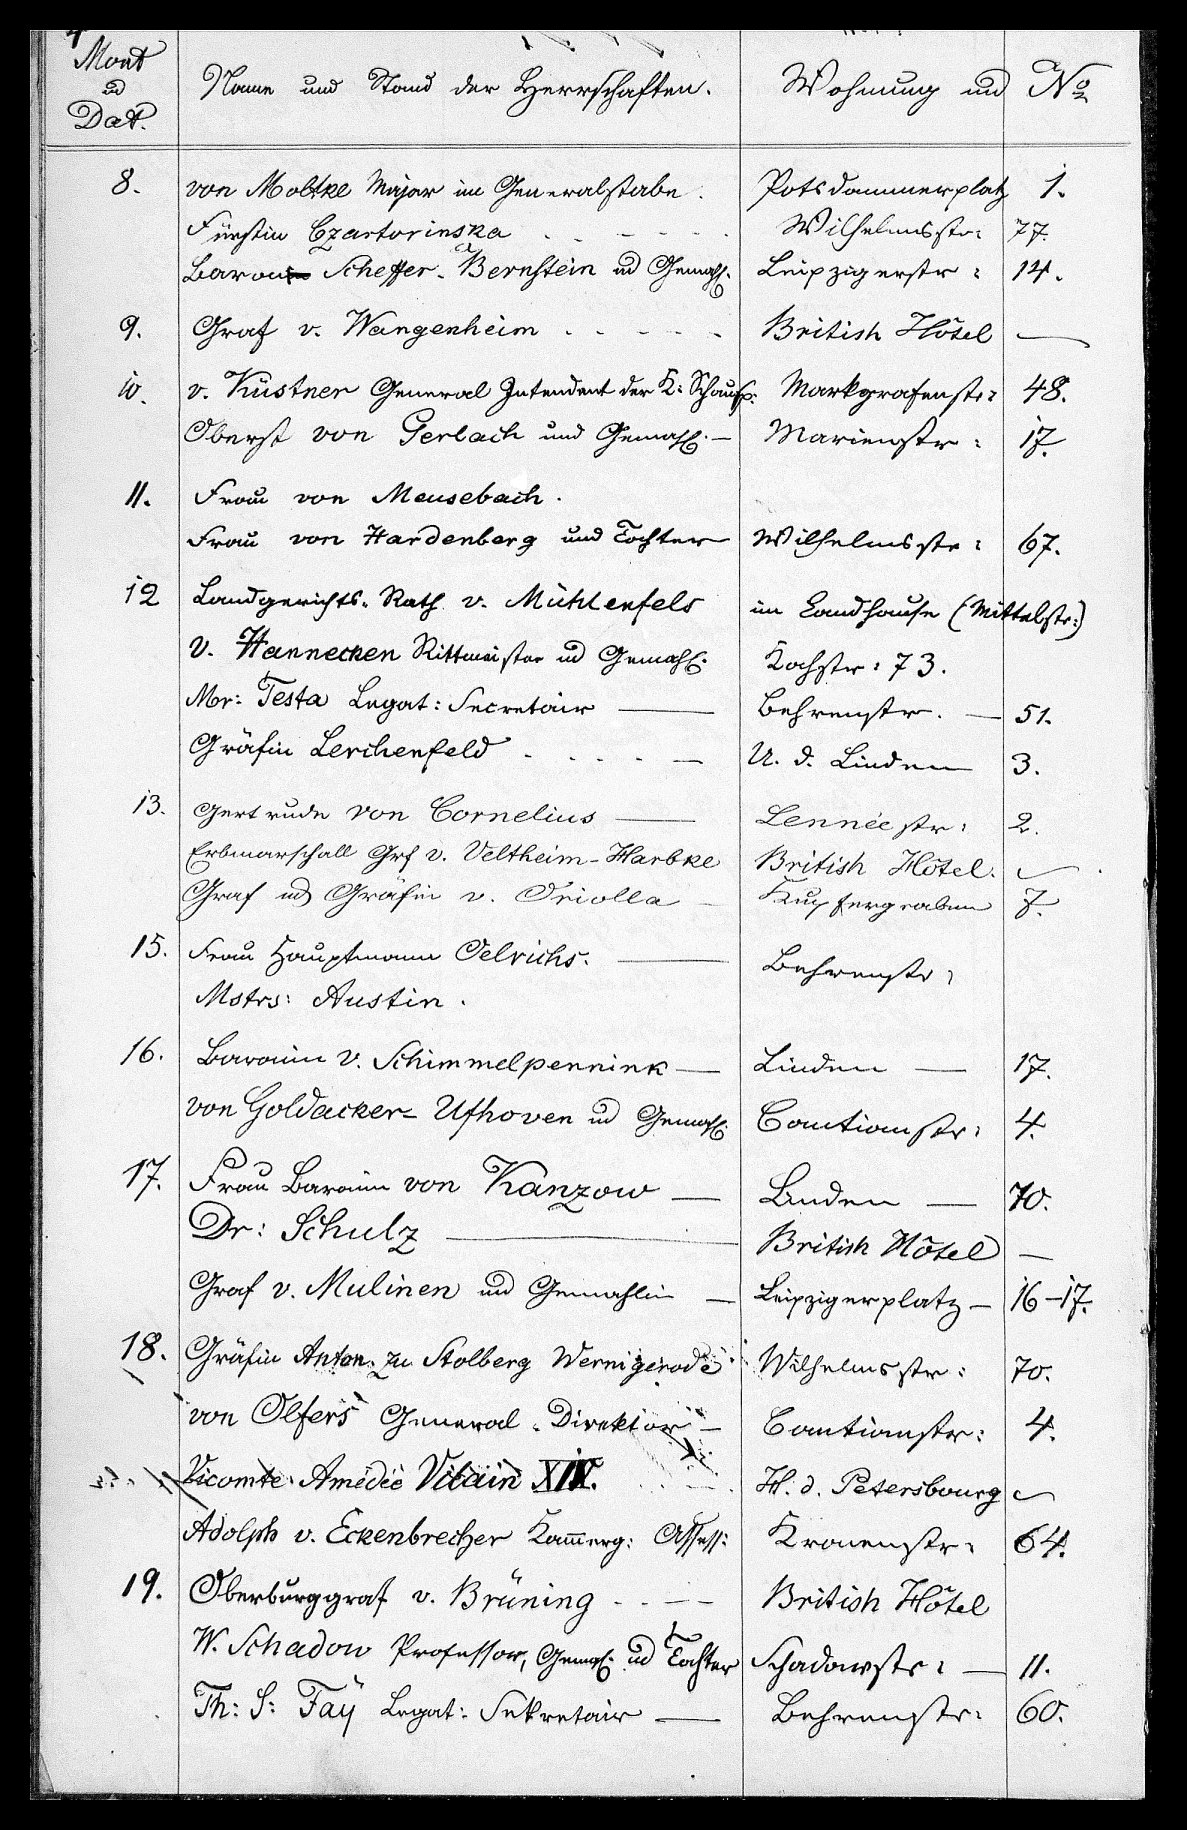 Monat
ud
Dat.
Name und Stand der Herrschaften. Wohnung und No
8. von Moltke Major im Generalstabe. Potsdammerplatz 1.
Fürstin Czartorinska Wilhelmsstr: 77.
Baron Scheffer-Bernstein ud Gemahl. Leipzigerstr: 14.
9. Graf v. Wangenheim British Hôtel —
10. v. Küstner General Intendent der K: Schausp: Markgrafenstr: 48.
Oberst von Gerlach und Gemahl. — Marienstr: 17.
11. Frau von Meusebach.
Frau von Hardenberg und Tochter Wilhelmsstr: 67.
12 Landgerichts-Rath v. Mühlenfels im Landhause (Mittelstr:)
v. Hannecken Rittmeister ud Gemahl. Kochstr: 73.
Mr: Testa Legat: Secretair — Behrenstr. — 51.
Gräfin Lerchenfeld U. d. Linden 3.
13. Gertrude von Cornelius — Lennée str: 2.
Erbmarschall Grf v. Veltheim-Harbke British Hôtel.
Graf ud Gräfin v. Oriolla — Kupfergraben 7.
15. Frau Hauptmann Oelrichs. — Behrenstr:
Mstrs: Austin.
16. Baronin v. Schimmelpennink — Linden — 17.
von Goldacker-Ufhoven ud Gemahl. Cantianstr: 4.
17. Frau Baronin von Kanzow — Linden — 70.
Dr: Schulz — British Hôtel —
Graf v. Mulinen und Gemahlin — Leipzigerplatz — 16-17.
18. Gräfin Anton. zu Stolberg Wernigerode Wilhelmsstr: 70.
von Olfers General-Direktor — Cantianstr: 4.
Vicomte Amédée Vilain XIV. H. d. Petersbourg
Adolph v. Eckenbrecher Kammerg: Assess: Kronenstr: 64.
19. Oberburggraf v. Brüning British Hôtel
W. Schadow Professor, Gemahl. ud Tochter Schadowstr: — 11.
Th: S: Faÿ Legat: Sekretair — Behrenstr: 60.